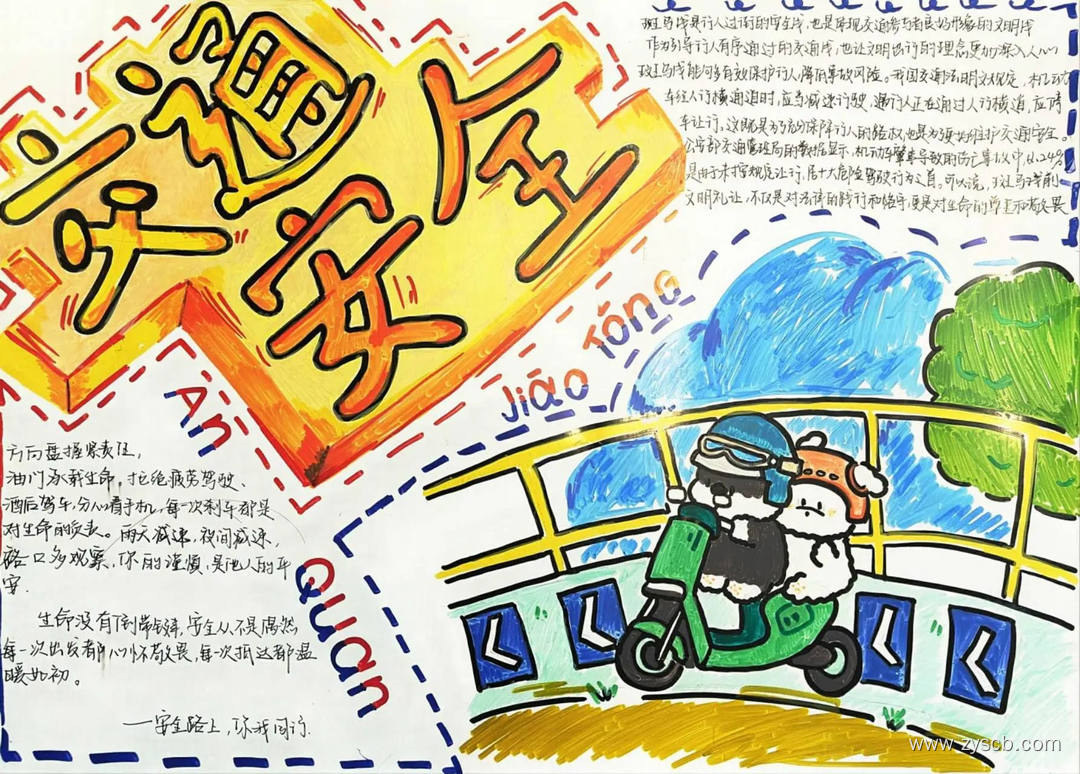 交通
安全
斑马线是行人过街的安全线,也是体现交通参与者良好形象的文明线
作为引导行人有序通过的交通线,也让文明出行的理念更加深入人心
斑马线能够有效保护行人,降低事故风险。我国交通法明文规定,机动
车经人行横道时,应当减速行驶,遇行人正在通过人行横道,应停
车让行,这既是为了充分保障行人的路权,也是为了更好的维护交通安全。
公安部交通管理局的数据显示,机动车肇事导致的伤亡事故中,
是由于未按规定让行,居十大危险驾驶行为之首,可以说,斑马线前
文明礼让,不仅是对法律的践行和恪守,更是对生命的尊重和敬畏
Jiāo Tōng
An
Quan
方向盘握紧责任,
油门承载生命。拒绝疲劳驾驶、
酒后驾车,分心看手机,每一次刹车都是
对生命的负责。雨天减速,夜间减速,
路口多观察,你的谨慎,是他人的平
安.
生命没有倒带键,安全从不是偶然
每一次出发都心怀敬畏,每一次抵达都温
暖如初。
—安全路上,你我同行.
www.zyscb.com